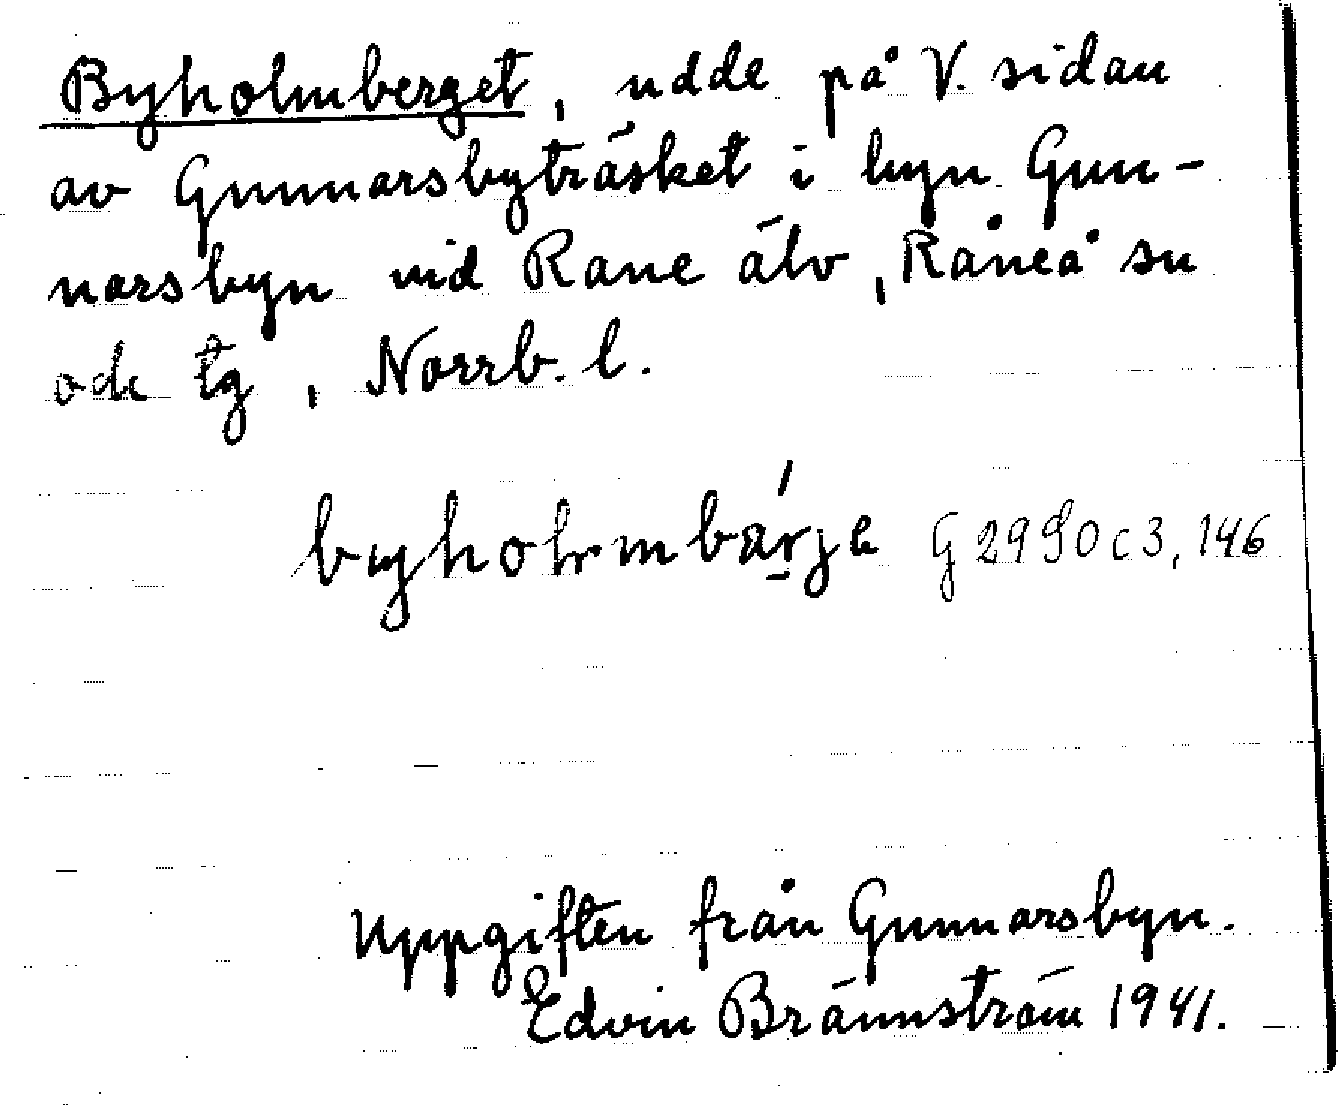 Byholmberget, udde på V. sidan
av Gunnarsbyträsket i byn Gun-
narsbyn vid Rane älv, Råneå sn
och tg, Norrb. l.
byholmbärje G 2990 c 3, 146
Uppgiften från Gunnarsbyn.
Edvin Brännström 1941.